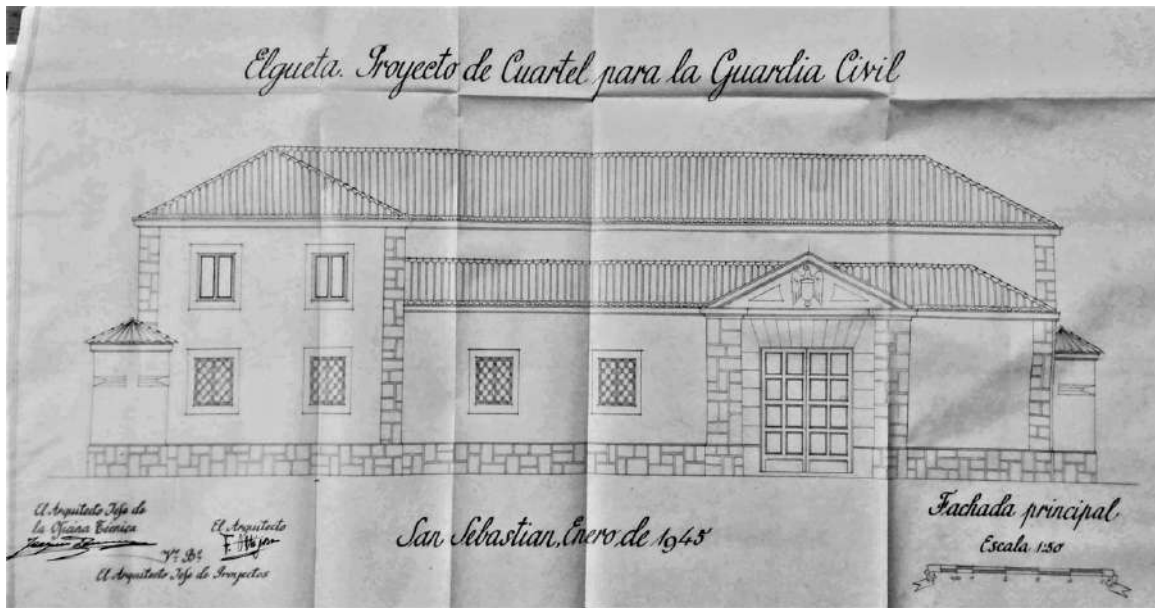 Elgueta. Proyecto de Cuartel para la Guardia Civil
El Arquitecto Jefe de
la Oficina Técnica
El Arquitecto
Vº Bº
El Arquitecto Jefe de Proyectos
San Sebastian, Enero de 1945
Fachada principal
Escala 1:50